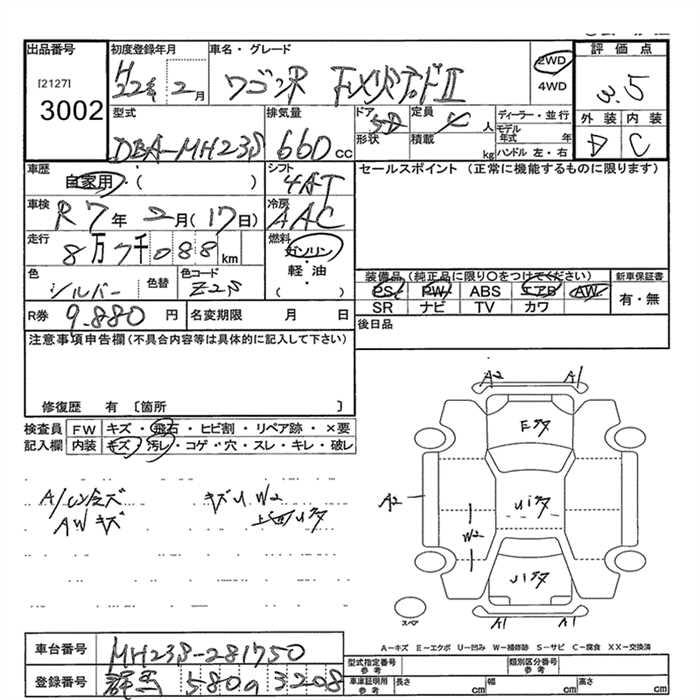 出品番号
[2127]
3002
初度登録年月
H22年 2月
車名・グレード
ワゴンR FXリミテッドⅡ
2WD
4WD
評価点
3.5
外装 内装
D C
型式
DBA-MH23S
排気量
660cc
ドア
5D
形状
定員
4人
積載
kg
ディーラー・並行
モデル年式 年
ハンドル 左・右
車歴
自家用・( )
シフト
4AT
セールスポイント (正常に機能するものに限ります)
車検
R7年 2月(17日)
冷房
AAC
走行
8万7千088km
燃料
ガソリン
・
軽・油
( )
色
シルバー
色替
色コード
Z2S
装備品 (純正品に限り○をつけてください)
PS PW ABS エアB AW
SR ナビ TV カワ
新車保証書
有・無
R券 9,880円
名変期限 月 日
後日品
注意事項申告欄(不具合内容等は具体的に記入して下さい)
修復歴 有 〔箇所 〕
検査員
記入欄
FW キズ・飛石・ヒビ割・リペア跡・×要
内装 キズ・汚レ・コゲ・穴・スレ・キレ・破レ
AWキズ
キズU W2
A2 A1
A2
W2
A1 A1
スペア
A-キズ E-エクボ U-凹み W-補修跡 S-サビ C-腐食 XX-交換済
車台番号
MH23S-281750
登録番号
580 3208
型式指定番号
参考
類別区分番号
参考
車庫証明用
参考
長さ cm
幅 cm
高さ cm